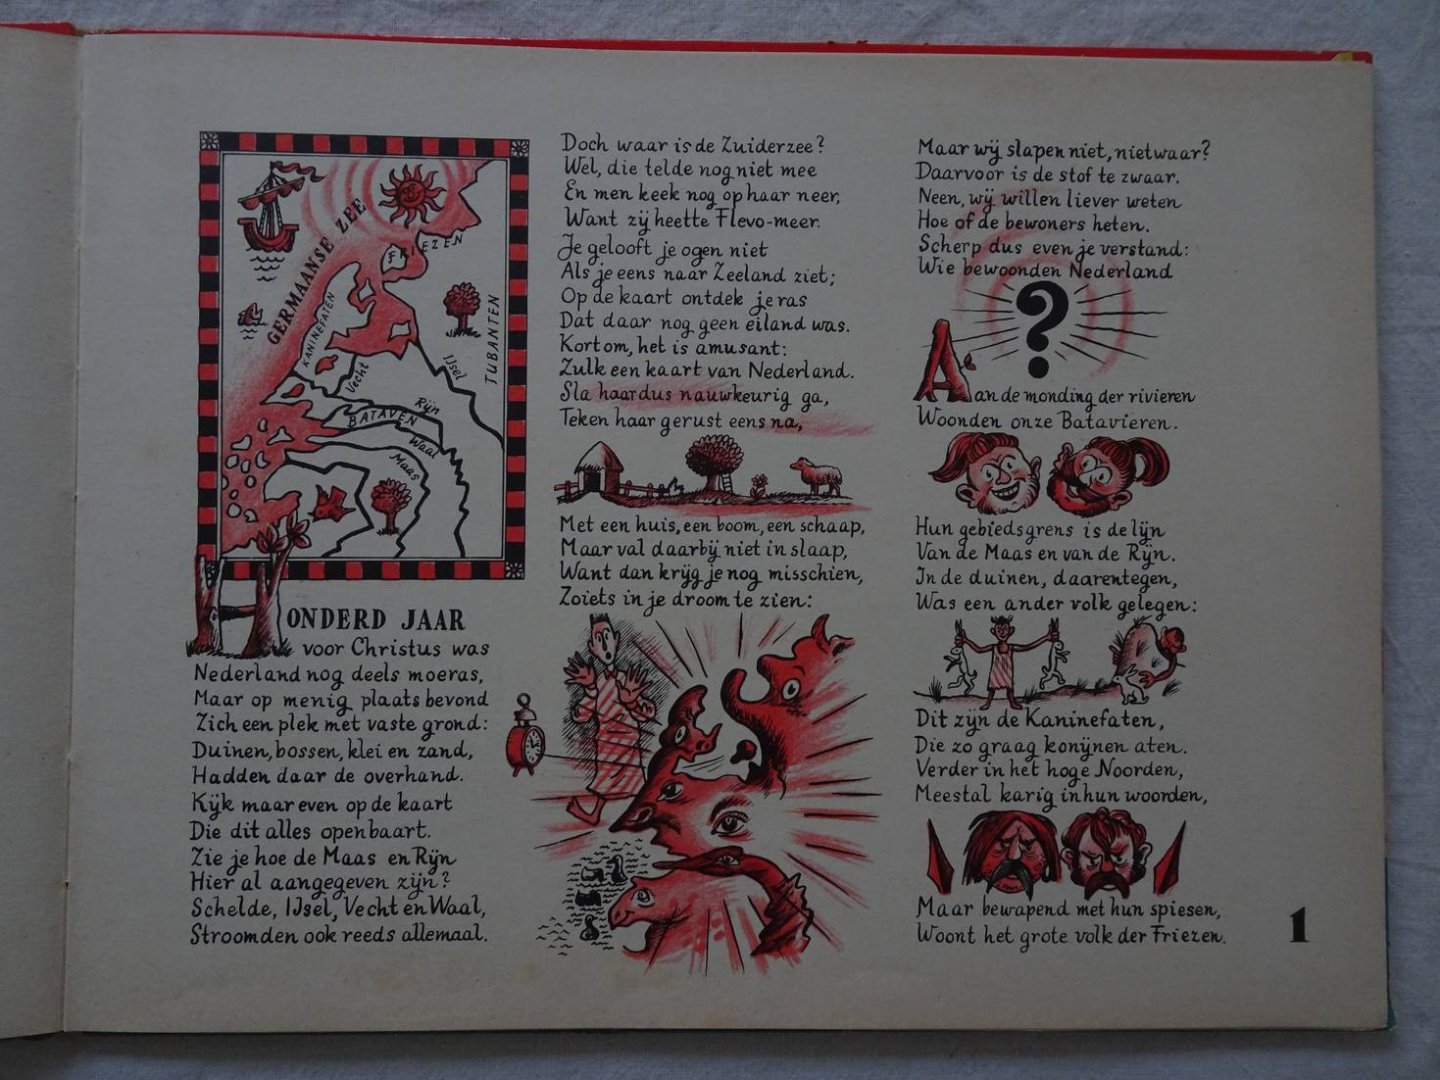 GERMAANSE ZEE
FRIEZEN
KANINEFATEN
TUBANTEN
Vecht
IJsel
Rijn
BATAVEN
Waal
Maas
HONDERD JAAR
voor Christus was
Nederland nog deels moeras,
Maar op menig plaats bevond
Zich een plek met vaste grond:
Duinen, bossen, klei en zand,
Hadden daar de overhand.
Kijk maar even op de kaart
Die dit alles openbaart.
Zie je hoe de Maas en Rijn
Hier al aangegeven zijn?
Schelde, IJsel, Vecht en Waal,
Stroomden ook reeds allemaal.
Doch waar is de Zuiderzee?
Wel, die telde nog niet mee
En men keek nog op haar neer,
Want zij heette Flevo-meer.
Je gelooft je ogen niet
Als je eens naar Zeeland ziet;
Op de kaart ontdek je ras
Dat daar nog geen eiland was.
Kortom, het is amusant:
Zulk een kaart van Nederland.
Sla haar dus nauwkeurig ga,
Teken haar gerust eens na,
Met een huis, een boom, een schaap,
Maar val daarbij niet in slaap,
Want dan krijg je nog misschien,
Zoiets in je droom te zien:
Maar wij slapen niet, nietwaar?
Daarvoor is de stof te zwaar.
Neen, wij willen liever weten
Hoe of de bewoners heten.
Scherp dus even je verstand:
Wie bewoonden Nederland
?
Aan de monding der rivieren
Woonden onze Batavieren.
Hun gebiedsgrens is de lijn
Van de Maas en van de Rijn.
In de duinen, daarentegen,
Was een ander volk gelegen:
Dit zijn de Kaninefaten,
Die zo graag konijnen aten.
Verder in het hoge Noorden,
Meestal karig in hun woorden,
Maar bewapend met hun spiesen,
Woont het grote volk der Friezen.
1